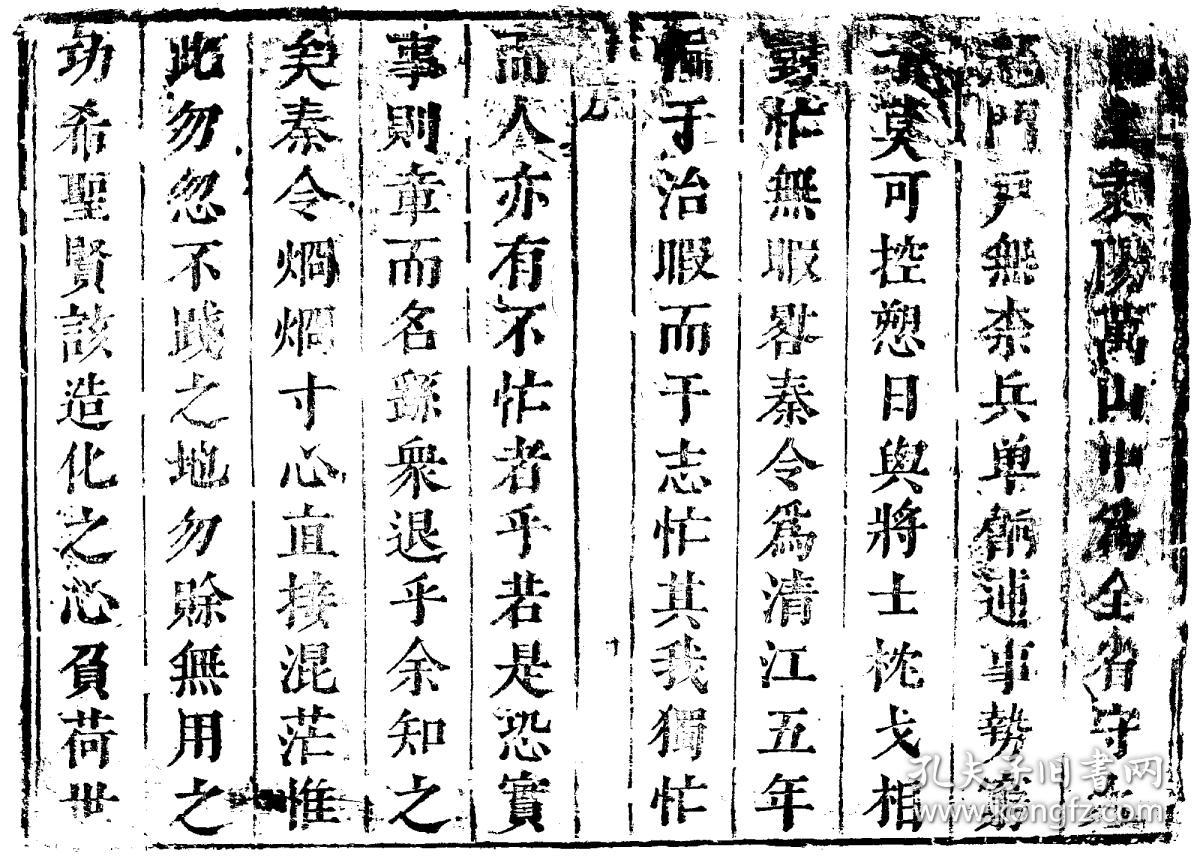 袁陽萬山中為全省守
門戶無柰兵单餉逋事勢
子莫可控愬日與將士枕戈相
忙無暇畧秦令為清江五年
偏于治暇而于志忙其我獨忙
而人亦有不忙者乎若是恐實
事則章而名繇衆退乎余知之
矣秦令烱烱寸心直接混茫惟
此勿忽不踐之地勿賒無用之
功希聖賢該造化之心負荷世
孔夫子旧书网
www.kongfz.com